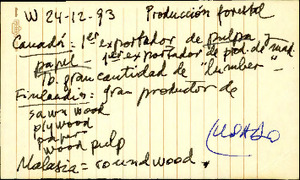 W 24-12-93 Producción forestal
Canadá: 1er exportador de pulpa y
papel - 1er exportador de prod. de mad.
Tb. gran cantidad de "lumber" -
Finlandia: gran productor de
sawn wood
plywood
paper
wood pulp
USADO
Malasia = roundwood.